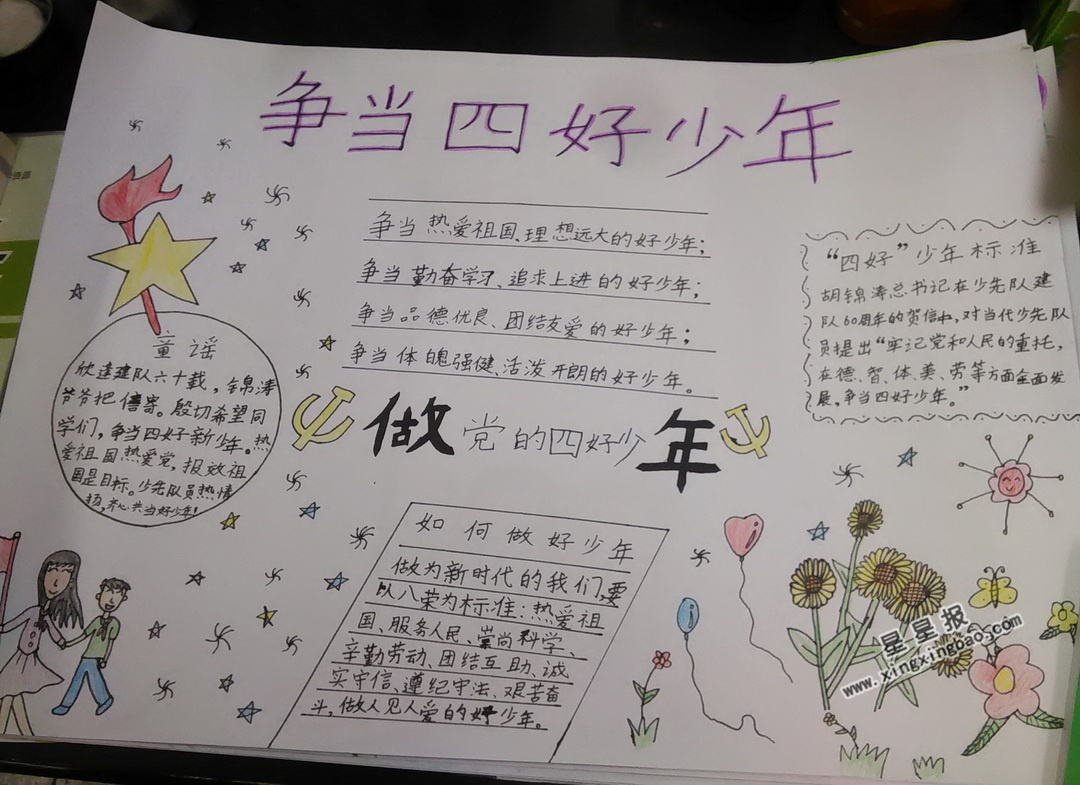 争当四好少年
争当热爱祖国、理想远大的好少年；
争当勤奋学习、追求上进的好少年；
争当品德优良、团结友爱的好少年；
争当体魄强健、活泼开朗的好少年。
“四好”少年标准
胡锦涛总书记在少先队建
队60周年的贺信中，对当代少先队
员提出“牢记党和人民的重托，
在德、智、体、美、劳等方面全面发
展，争当四好少年。”
童谣
欣逢建队六十载，锦涛
爷爷把信寄。殷切希望同
学们，争当四好新少年。热
爱祖国热爱党，报效祖
国是目标。少先队员热情
扬，齐心共当好少年！
做党的四好少年
如何做好少年
做为新时代的我们，要
以八荣为标准：热爱祖
国、服务人民、崇尚科学、
辛勤劳动、团结互助、诚
实守信、遵纪守法、艰苦奋
斗，做人见人爱的好少年。
星星报
www.xingxingbao.com